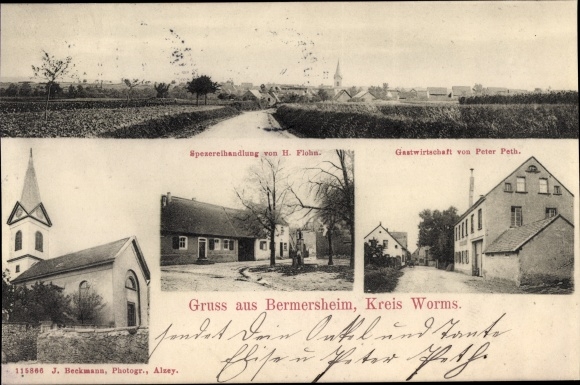 Spezereihandlung von H. Flohn.
Gastwirtschaft von Peter Peth.
Gruss aus Bermersheim, Kreis Worms.
sendet Dein Onkel und Tante
Elise u Peter Peth.
118866 J. Beckmann, Photogr., Alzey.